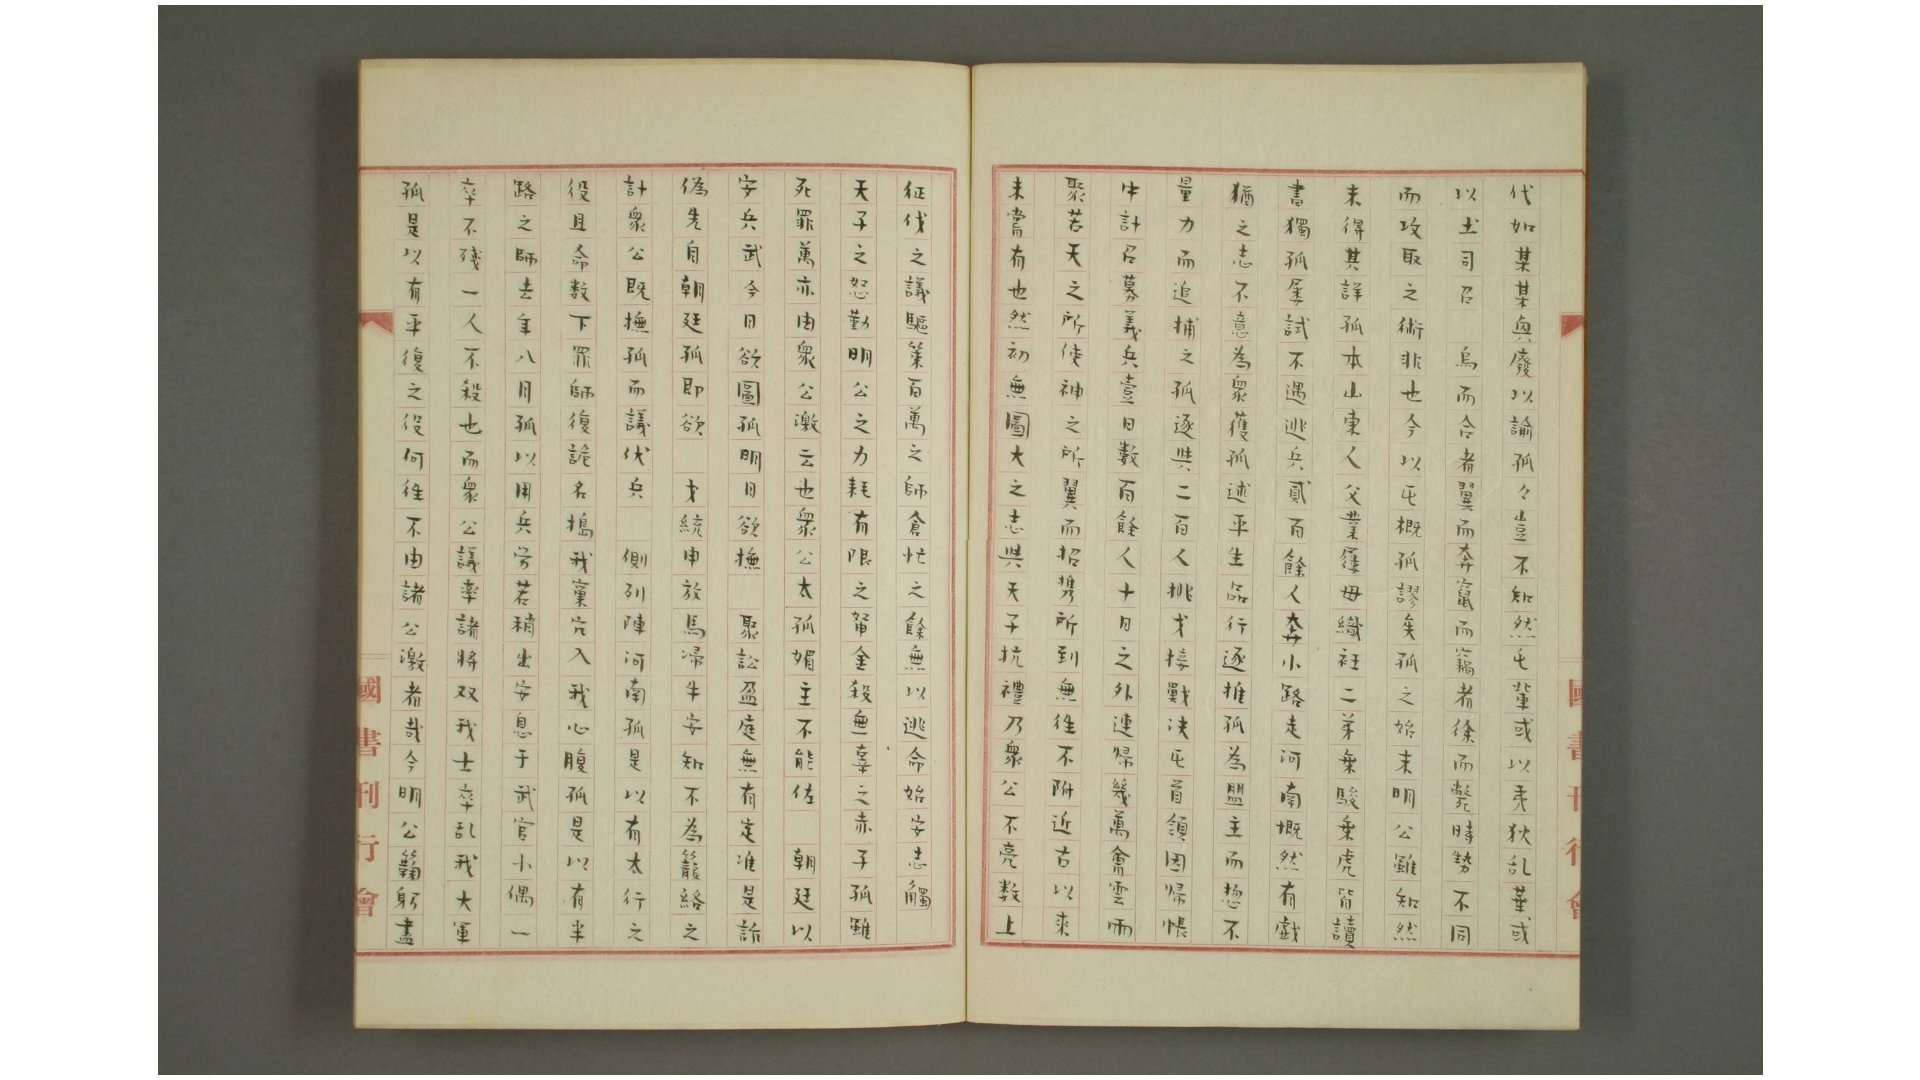 代如某某與廢以諭孤々豈不知然乇輩或以夷狄乱華或
以土司召　烏而合者翼而奔竄而竊者徐而斃時勢不同
而攻取之術非也今以乇概孤謬矣孤之始末明公雖知然
未得其詳孤本山東人父業屨毋織衽二弟乗駿乗虎皆讀
書獨孤屡試不遇逃兵貳百餘人奔小路走河南慨然有戯
猶之志不意為衆獲孤述平生品行逐推孤為盟主而惣不
量力而追捕之孤逐與二百人挑才接戰决乇首領因帰帳
中計召募義兵壹日數百餘人十月之外連帰幾萬會雲雨
聚若天之所使神之所翼而招携所到無徃不附近古以来
未嘗有也然初無圖大之志與天子抗禮乃衆公不亮数上
征伐之議驅集百萬之師倉忙之餘無以逃命始安志觸
天子之怒勤明公之力耗有限之帑金殺無辜之赤子孤雖
死罪萬亦由衆公激云也衆公太孤媚主不能佐　朝廷以
安兵武今日欲圖孤明日欲撫　聚訟盈庭無有定准是訴
偽先自朝廷孤即欲　才統申放馬帰牛安知不為籠絡之
計衆公既撫孤而議伏兵　側列陣河南孤是以有太行之
役且命数下罪師復詭名搗我窠穴入我心腹孤是以有半
路之師去年八月孤以用兵労若稍出安息于武官小偶一
卒不残一人不殺也而衆公議率諸将双我士卒乱我大軍
孤是以有平復之役何徃不由諸公激者哉今明公鞠躬盡
國書刊行會
國書刊行會